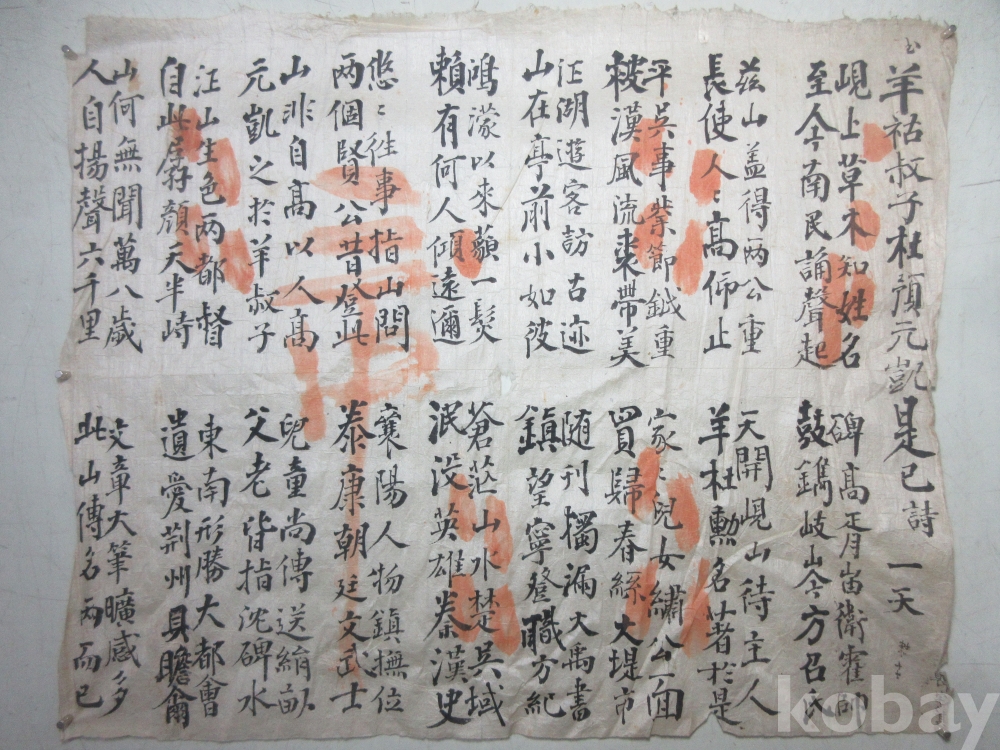 羊祜叔子杜預元凱是已詩 一天
峴上草木知姓名
至今南民誦聲起
玆山盖得兩公重
長使人〻高仰止
平吳事業節鉞重
被漢風流裘帶美
江湖遊客訪古迹
山在亭前小如彼
鴻濛以來一髮
賴有何人傾遠邇
悠〻往事指山問
兩個賢公昔登此
山非自高以人高
元凱之於羊叔子
江山生色兩都督
自此孱顔天半峙
山何無聞萬八歲
人自揚聲六千里
碑高衛霍
鼓鐫岐山今方召氏
天開峴山待主人
羊杜勳名著於是
家〻兒女繡公面
買歸春絲大堤市
随刊獨漏大禹書
鎮望寧登職方紀
蒼茫山水楚吳域
泯沒英雄秦漢史
襄陽人物鎮撫位
泰康朝廷文武士
兒童尚傳送絹畝
父老皆指沈碑水
東南形勝大都會
遺愛荊州具瞻
文章大筆曠感多
此山傳名兩而已
kobay